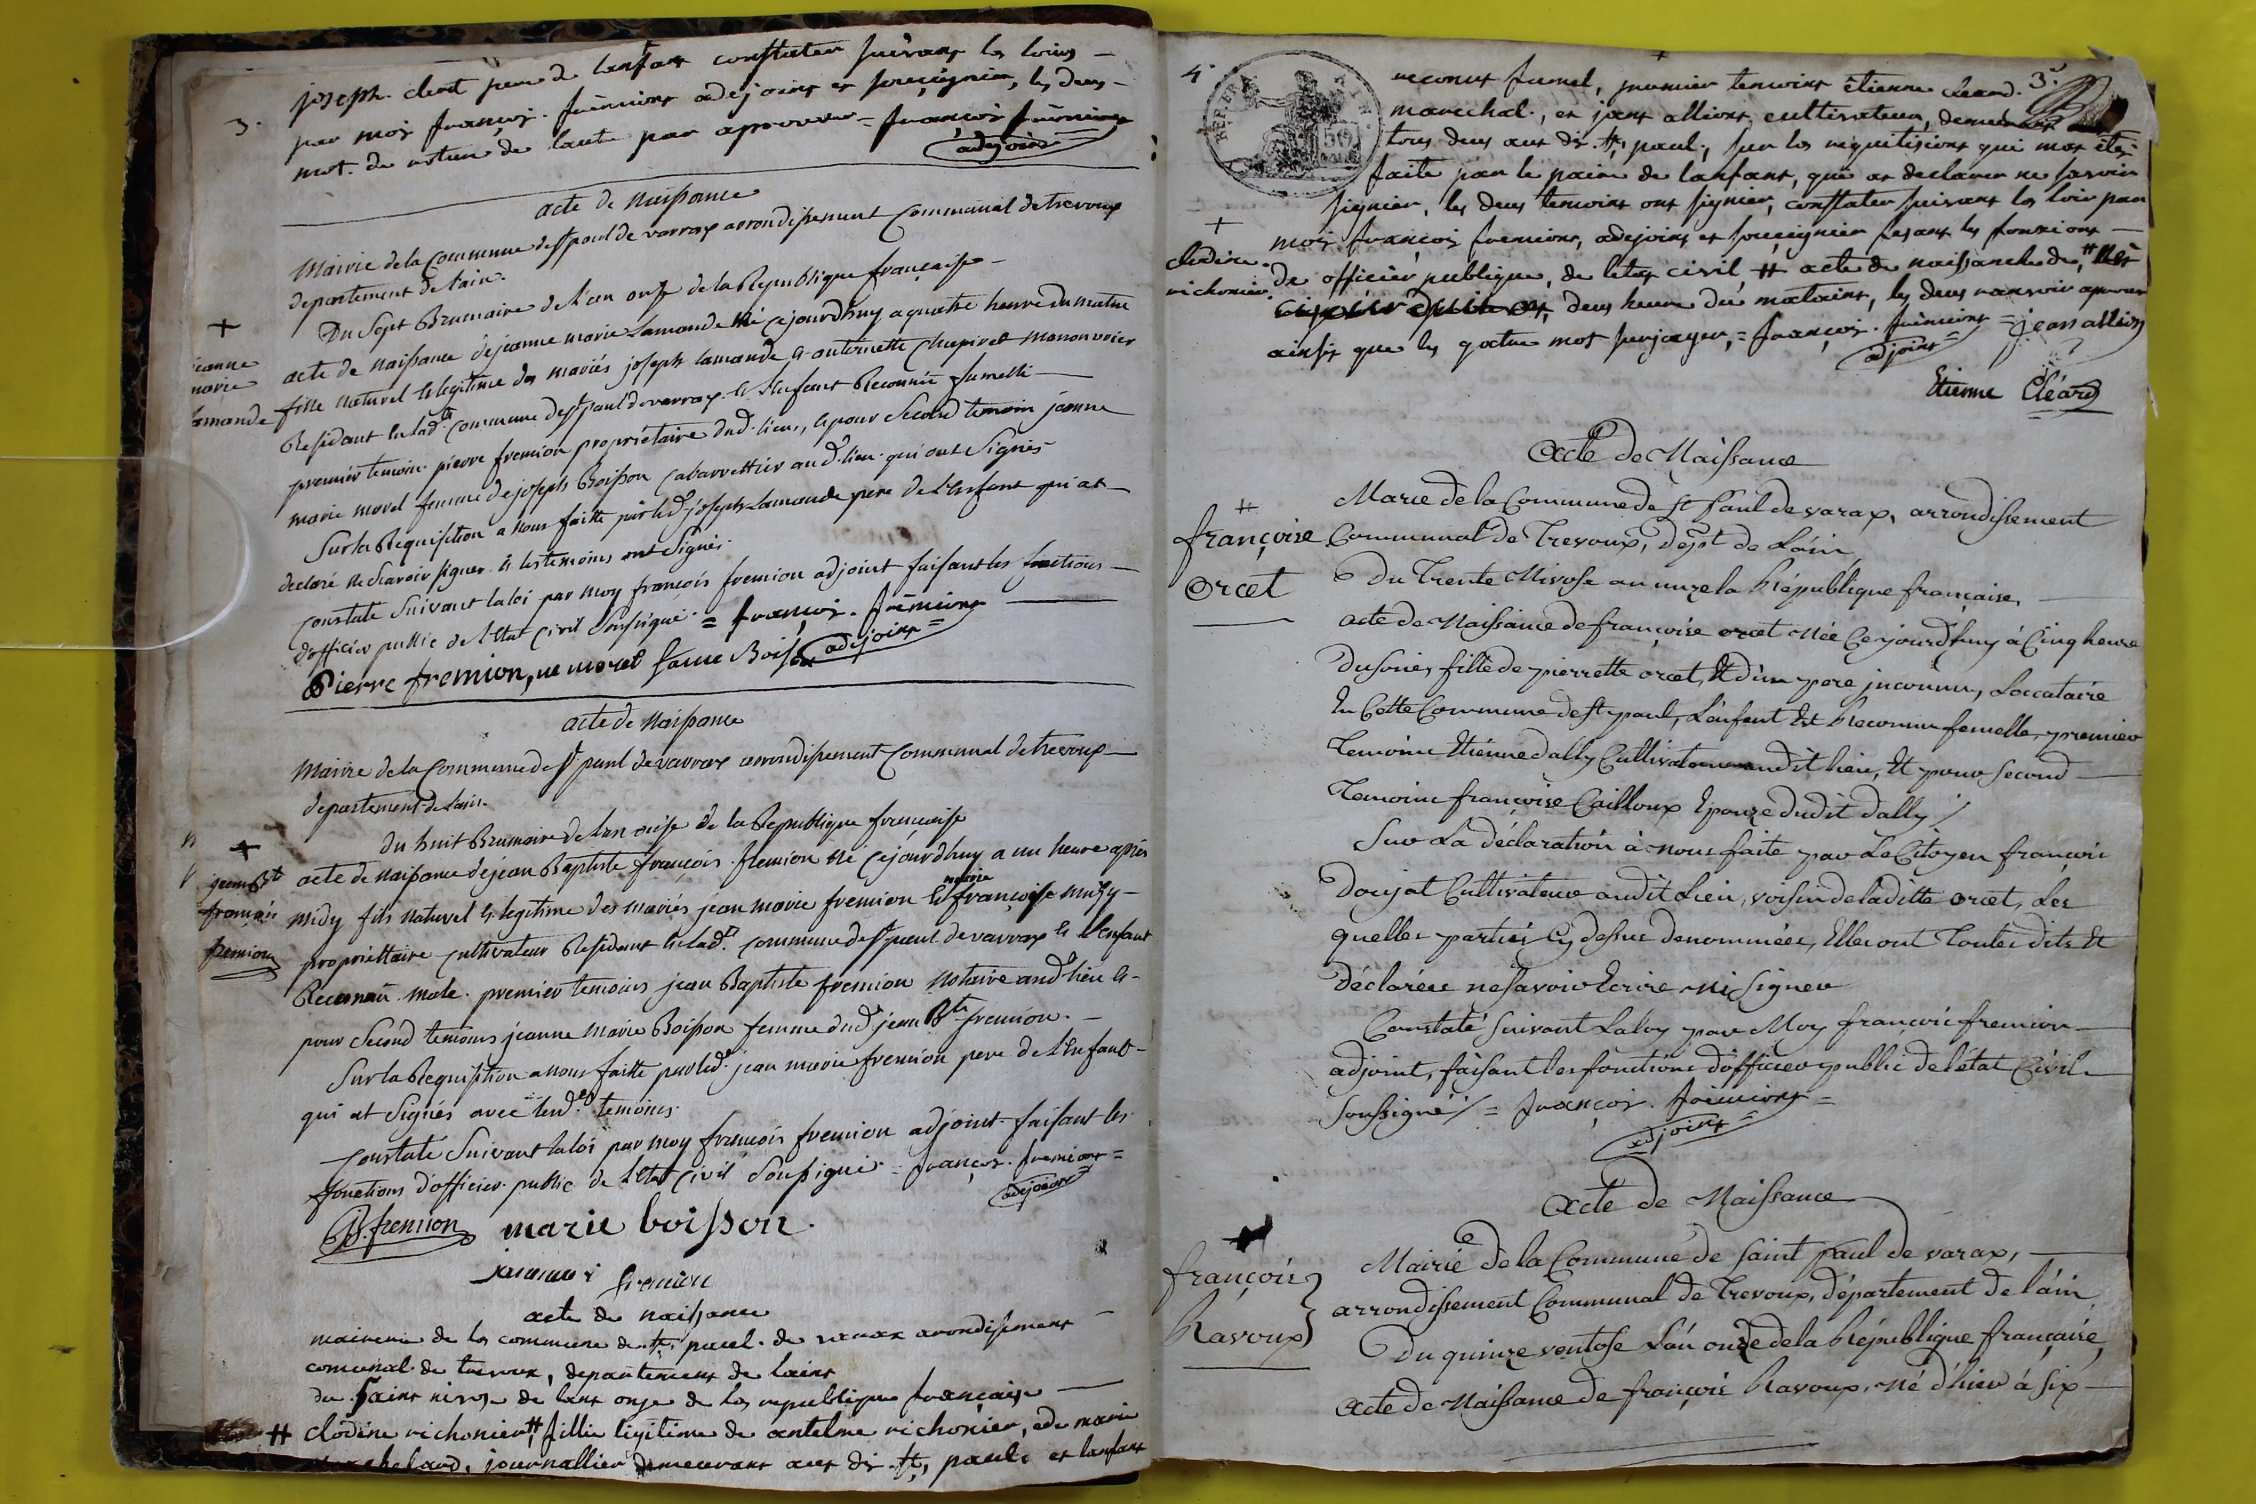 3.
joseph. clert pere de lenfant constater suivant les loix
par moi françois. frèmiont adejoint et soucignier, les deus
mot. de autre de laute par aprouver = françois frèmiont
adejoint
acte de Naissance
Mairie de la Commune de st paul de varrax arrondissement Communal de trevoux
departement de l'ain.
Du Sept Brumaire de l'an onze de la Republique française
+
jeanne
marie
lamande
acte de Naissance de jeanne marie Lamande Né cejourdhuy a quatre heure du matin
fille naturel & legitime des mariés joseph lamande & antoinette Chapirel manouvrier
Residant en lad.te Commune de st paul de varrax. & l'Enfant Reconnüe fumelle
premier temoin pierre fremion proprietaire dud. lieu, & pour Second temoin jeanne
marie morel femme de joseph Boisson Cabarettier aud. lieu qui ont Signés
Sur la Requisition a Nous faitte par led. joseph Lamande pere de l'Enfant qui at
declaré ne Scavoir signer & les temoins ont Signés.
Constate Suivant la loi par moy françois fremion adjoint faisant les fonctions
d'officier public de l'Etat Civil Soussigné. = françois. frèmiont
adejoint =
Pierre fremion, ne morel fame Boison
acte de Naissance
Mairie de la Commune de st paul de varrax arrondissement Communal de trevoux
departement de Lain.
du huit Brumaire de l'an onze de la Republique française
+
jean Bte
françois
fremion
acte de Naissance de jean Baptiste françois fremion Né cejourdhuy a un heure après
midy fils naturel & legitime des mariés jean marie fremion & marie françoise
propriettaire cultivateur Residant en lad.te commune de st paul de varrax & l'Enfant
Reconnu male. premier temoins jean Baptiste fremion Notaire aud. lieu &
pour Second temoins jeanne Marie Boisson femme dud. jean Bte fremion.
Sur la Requisition a nous faitte par led. jean marie fremion pere de l'Enfant
qui at Signés avec lesd. temoins.
Constate Suivant la loi par moy françois fremion adjoint faisant les
fonctions d'officier public de l'Etat Civil Soussigné = françois. fremiont =
adejoint
JB. fremion marie boisson
fremion
acte de naissance
mairerie de la commune de st, paul. de varax arondisement
comunal de trevoux, departement de lains
du nivose de lant onze de la republique française
# clodine richonier #, fillie ligitime de antelme richonier, ede marie
cheland, journallier demeurant aut dit. st, paul. et lanfant
4.
3.
REP. FRA.
50
reconut fumel, premier temoins ètienne cleard.
marechal., et jant alliont, cultivateur, demeurant
tous deus aut dit. st, paul., sur la requitisiont qui mat ètèz
faite par le paire de lanfant, qui at declarer ne savoir
signier, les deus temoint ont signier, constater suivant la loix par
+
clodine.
richonier.
moi françois frèmiont, adejoint et souçignier fesant les fonxiont
de officier publique, de letat civil # acte de naissanche de,
deus heure du mataint, les deus ranvoir aprouver
ainsis que les qatre mot surjarger, = françois. frèmiont = jean allion
adjoint =
Etienne Cléard
Acte de Naissance
Marie de la Commune de St Paul de varax, arrondissement
Communal de Trevoux, dépt de L'ain,
#
françoise
orcet
Du Trente Nivose an unze la République française,
acte de Naissance de françoise orcet Née Cejourd'huy à Cinq heure
du soir, fille de pierrette orcet, Et d'un pere inconnu, Loccataire
En Cette Commune de st paul, L'enfent Est Reconnu femelle, premier
Temoine Etiennedally Cultivateur audit lieu, Et pour second
Temoine françoise Cailloux Epouze dudit dally /
Sur La déclaration à nous faite par Le Citoyen françois
doujat Cultivateur audit Lieu, voisin de laditte orcet, Les
quelles parties cy dessus denommées, Elles ont Toutes dits Et
déclarées ne savoir Ecrire ni signer
Constaté suivant La loy par Moy françois fremion
adjoint, faisant les fonctions d'officier public de l'état Civil
soussigné / = françois. frèmiont =
adjoint =
Acte de Naissance
françois
Ravoux
Mairie de la Commune de saint paul de varax,
arrondissement Communal de Trevoux, département de l'ain
Du quinze ventose L'an onze de la République française,
Acte de Naissance de françois Ravoux, Né d'hier à six